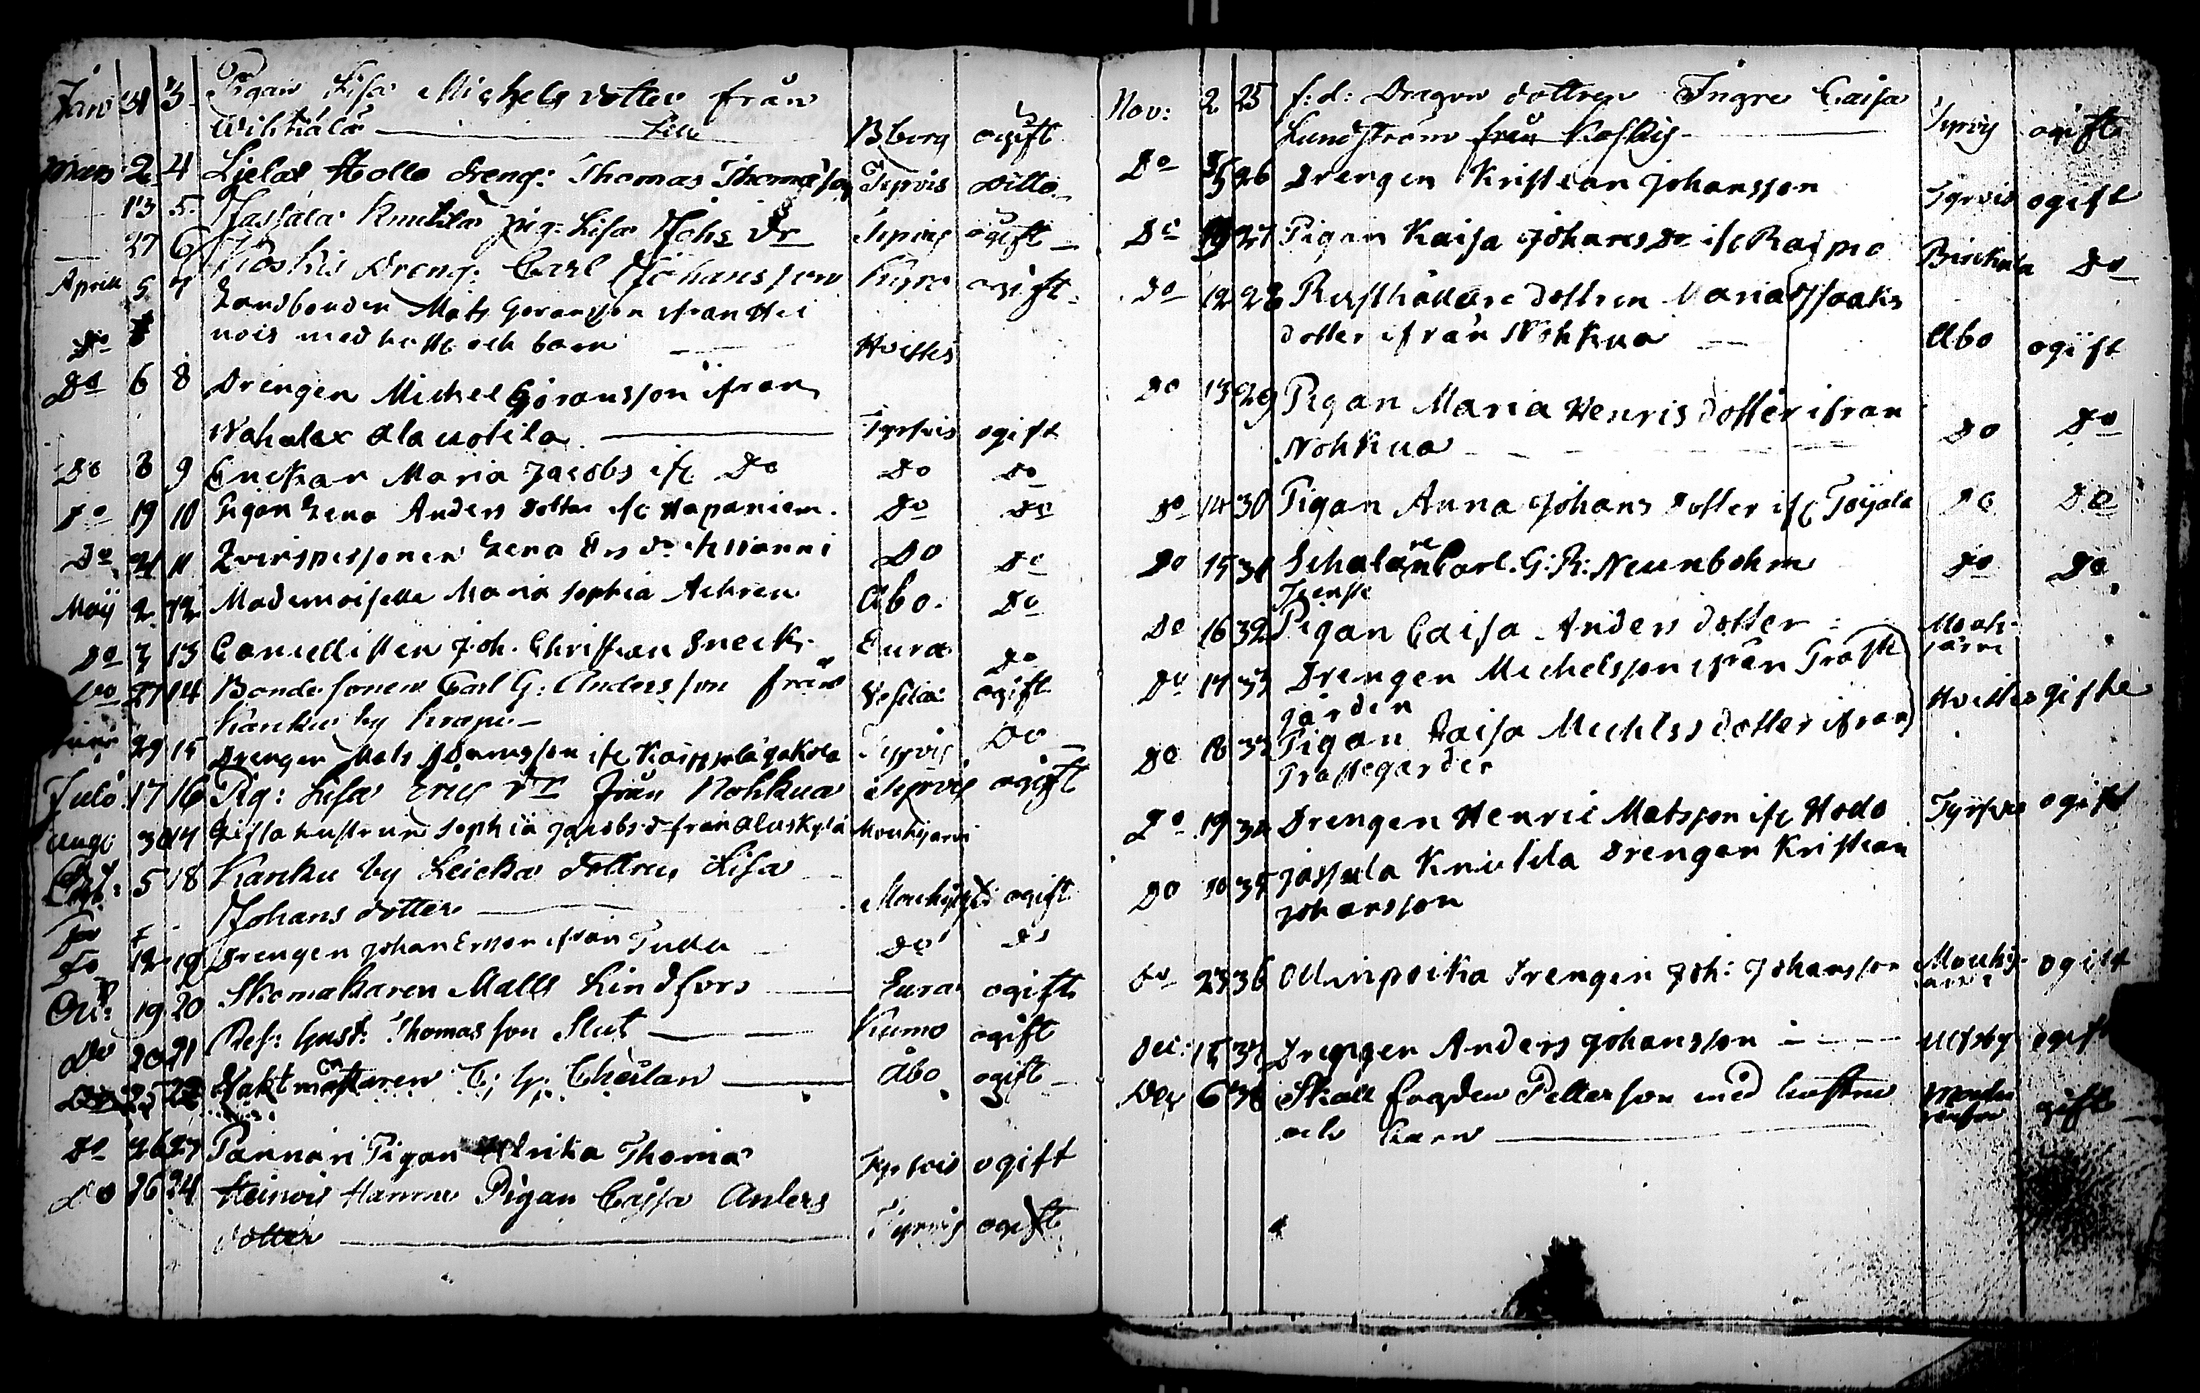 Janu 31 3 Pigan Lisa Michels dotter från
Wihtälä Bberg ogift
Mars 2 4 Ljelax Hollo dreng: Thomas Thomasson Tyrvis ditto
13 5 Jassala Knutila pig: Lisa Johs Dr Tyrvis ogift
27 6 Koskis Dreng: Carl Johansson Kyro ogift
Aprill 5 7 Landbonden Mats Göransson ifran Hei
nois med hust och barn Hvittis
Do 6 8 Drengen Michel Göransson ifran
Alauotila Tyrvis ogift
Do 8 9 Enckan Maria Jacobs ifr Do Do Do
Do 19 10 Pigan Lena Anders dotter ifr Hapaniem. Do Do
Do 21 11 Qvinspersonen Lena Do Do
Maij 2 12 Mademoiselle Maria Sophia Achren Åbo. Do
Do 3 13 Cancellisten Joh. Christian Sneck Eura Do
Do 27 14 Bonde sonen Carl G: Andersson från Vesilax ogift
Kanku by
Juni 29 15 Drengen Mats Adamsson ifr Tyrvis Do
Julii 17 16 Pig: Lisa Eries Dr från Nohkua Tyrvis ogift
Aug: 30 17 Gifta hustrun Sophia Jacobs d från Mouhijarvi
5 18 Kanku by Leicka dottren Lisa
Johans dotter Mouhijärvi ogift
Do 12 19 Drengen Johan Ersson ifrån Do Do
Oct: 19 20 Skomakaren Malls Lindfors Eura ogift
Do 20 21 Ref: Gust: Thomasson Slut Kumo ogift
25 22 C: G: Åbo ogift
Do 26 23 Pannari Pigan Ulrika Thomas Tyrvis ogift
Do 26 24 Heinois Hannu Pigan Caijsa Anders
dotter Tyrvis ogift
Nov: 2 25 f: d: Dragon dottren Ingre Caisa
Lundström från Koskis Tyrvis ogift
Do 26 Drengen Kristian Johansson Tyrvis ogift
Do 27 Pigan Kaisa Johans Dr ifr Raipio Birckala Do
Do 12 28 Rusthållare dottren Maria Isaaks
dotter ifrån Nohkua Abo ogift
Do 13 29 Pigan Maria Henris dotter ifran
Nohkua Do Do
Do 14 30 Pigan Anna Johans dotter ifr Toijala Do Do
Do 15 31 Scholaren Carl. G: R: Neunbohm Do Do
Tjenst
Do 16 32 Pigan Caisa Anders dotter Mouhi-
järvi
Do 17 33 Drengen Michelsson ifrån Trast
gården Hvittis gifte
Do 18 33 Pigan Kaisa Michels dotter ifran
Trastegården
Do 19 34 Drengen Henric Matsson ifr Hodo Tyrvis ogift
Do 35 Jassula Knutila Drengen Kristian
Johansson
Do 23 36 Drengen Joh: Johansson Mouhi-
järvi ogift
Dec: 37 Drengen Anders Johansson Ulfsby ogift
6 38 Skall fogden Petterson med hustru
och barn gift